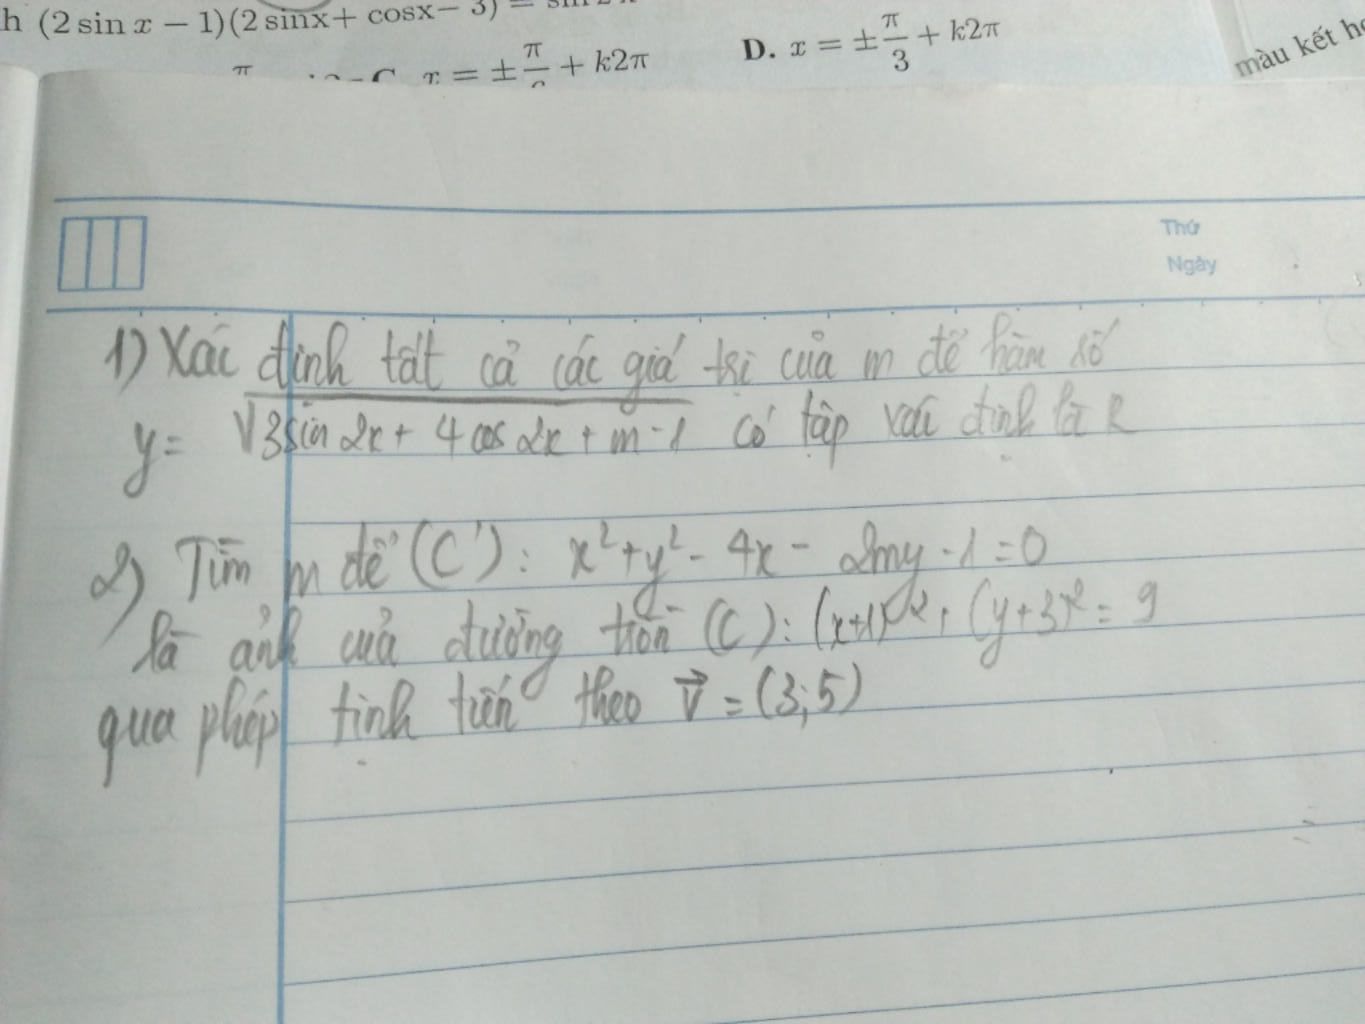 h (2 sin x − 1)(2 sinx + cosx − 3) = sin 2
C. x = ± π/ + k2π
D. x = ± π/3 + k2π
màu kết h
Thứ
Ngày
1) Xác định tất cả các giá trị của m để hàm số
y = √3sin 2x + 4 cos 2x + m - 1 có tập xác định là R
2) Tìm m để (C'): x² + y² - 4x - 2my - 1 = 0
là ảnh của đường tròn (C): (x+1)² + (y+3)² = 9
qua phép tịnh tiến theo v⃗ = (3;5)